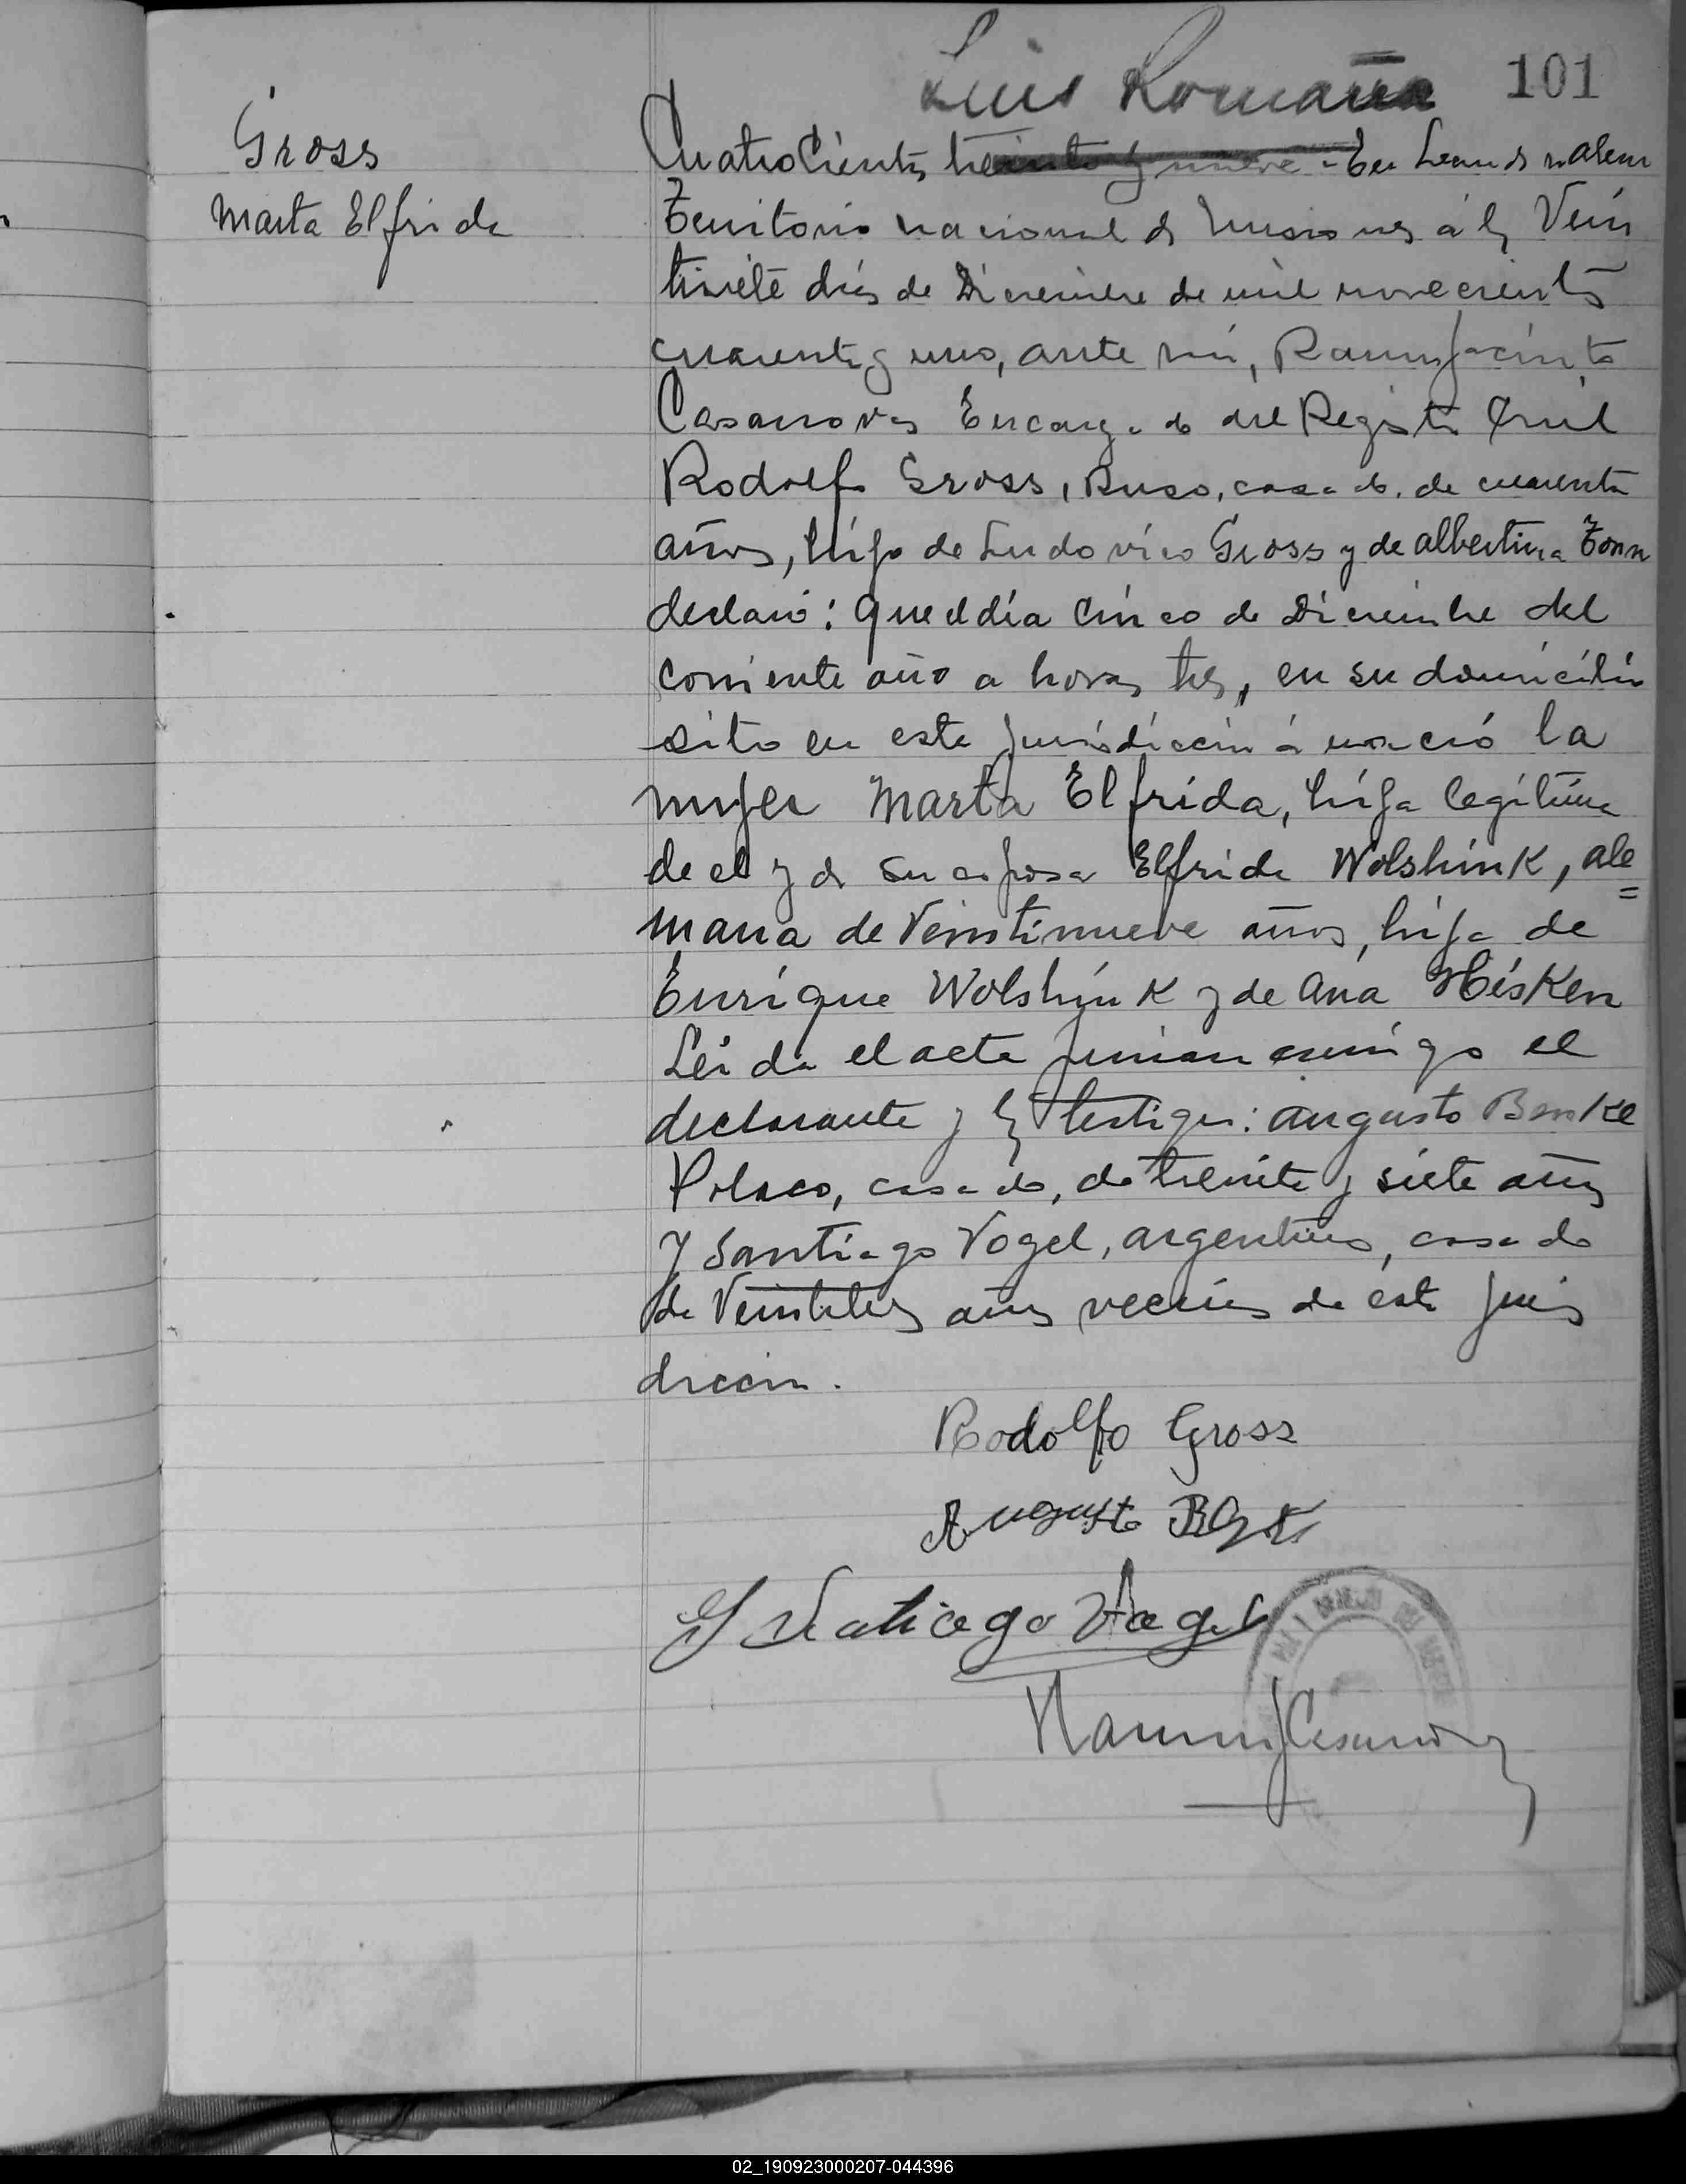 Luis Romaña 101
Gross
Marta Elfrida
Cuatrocientos treinta y nueve - En Leandro N alem
Territorio nacional de Misiones a los Vein
tisiete dias de Diciembre de mil novecientos
cuarenta y uno, ante mi, Ramon Jacinto
Casanovas Encargado del Registro Civil
Rodolfo Gross, Ruso, casado, de cuarenta
años, hijo de Ludovico Gross y de albertina Tonn
declaró: que el día Cinco de Diciembre del
corriente año a horas tres, en su domicilio
sito en esta jurisdicción nació la
mujer Marta Elfrida, hija legítima
de el y de su esposa Elfrida Wolshink, ale=
mana de Veintinueve años, hija de
Enrique Wolshink y de Ana Hisken
Leida el acta firman conmigo el
declarante y los testigos: augusto Benke
Polaco, casado, de treinta y siete años
y Santiago Vogel, argentino, casado
de Veintitres años vecinos de esta juris
dicción.
Rodolfo Gross
Augusto
Vogel